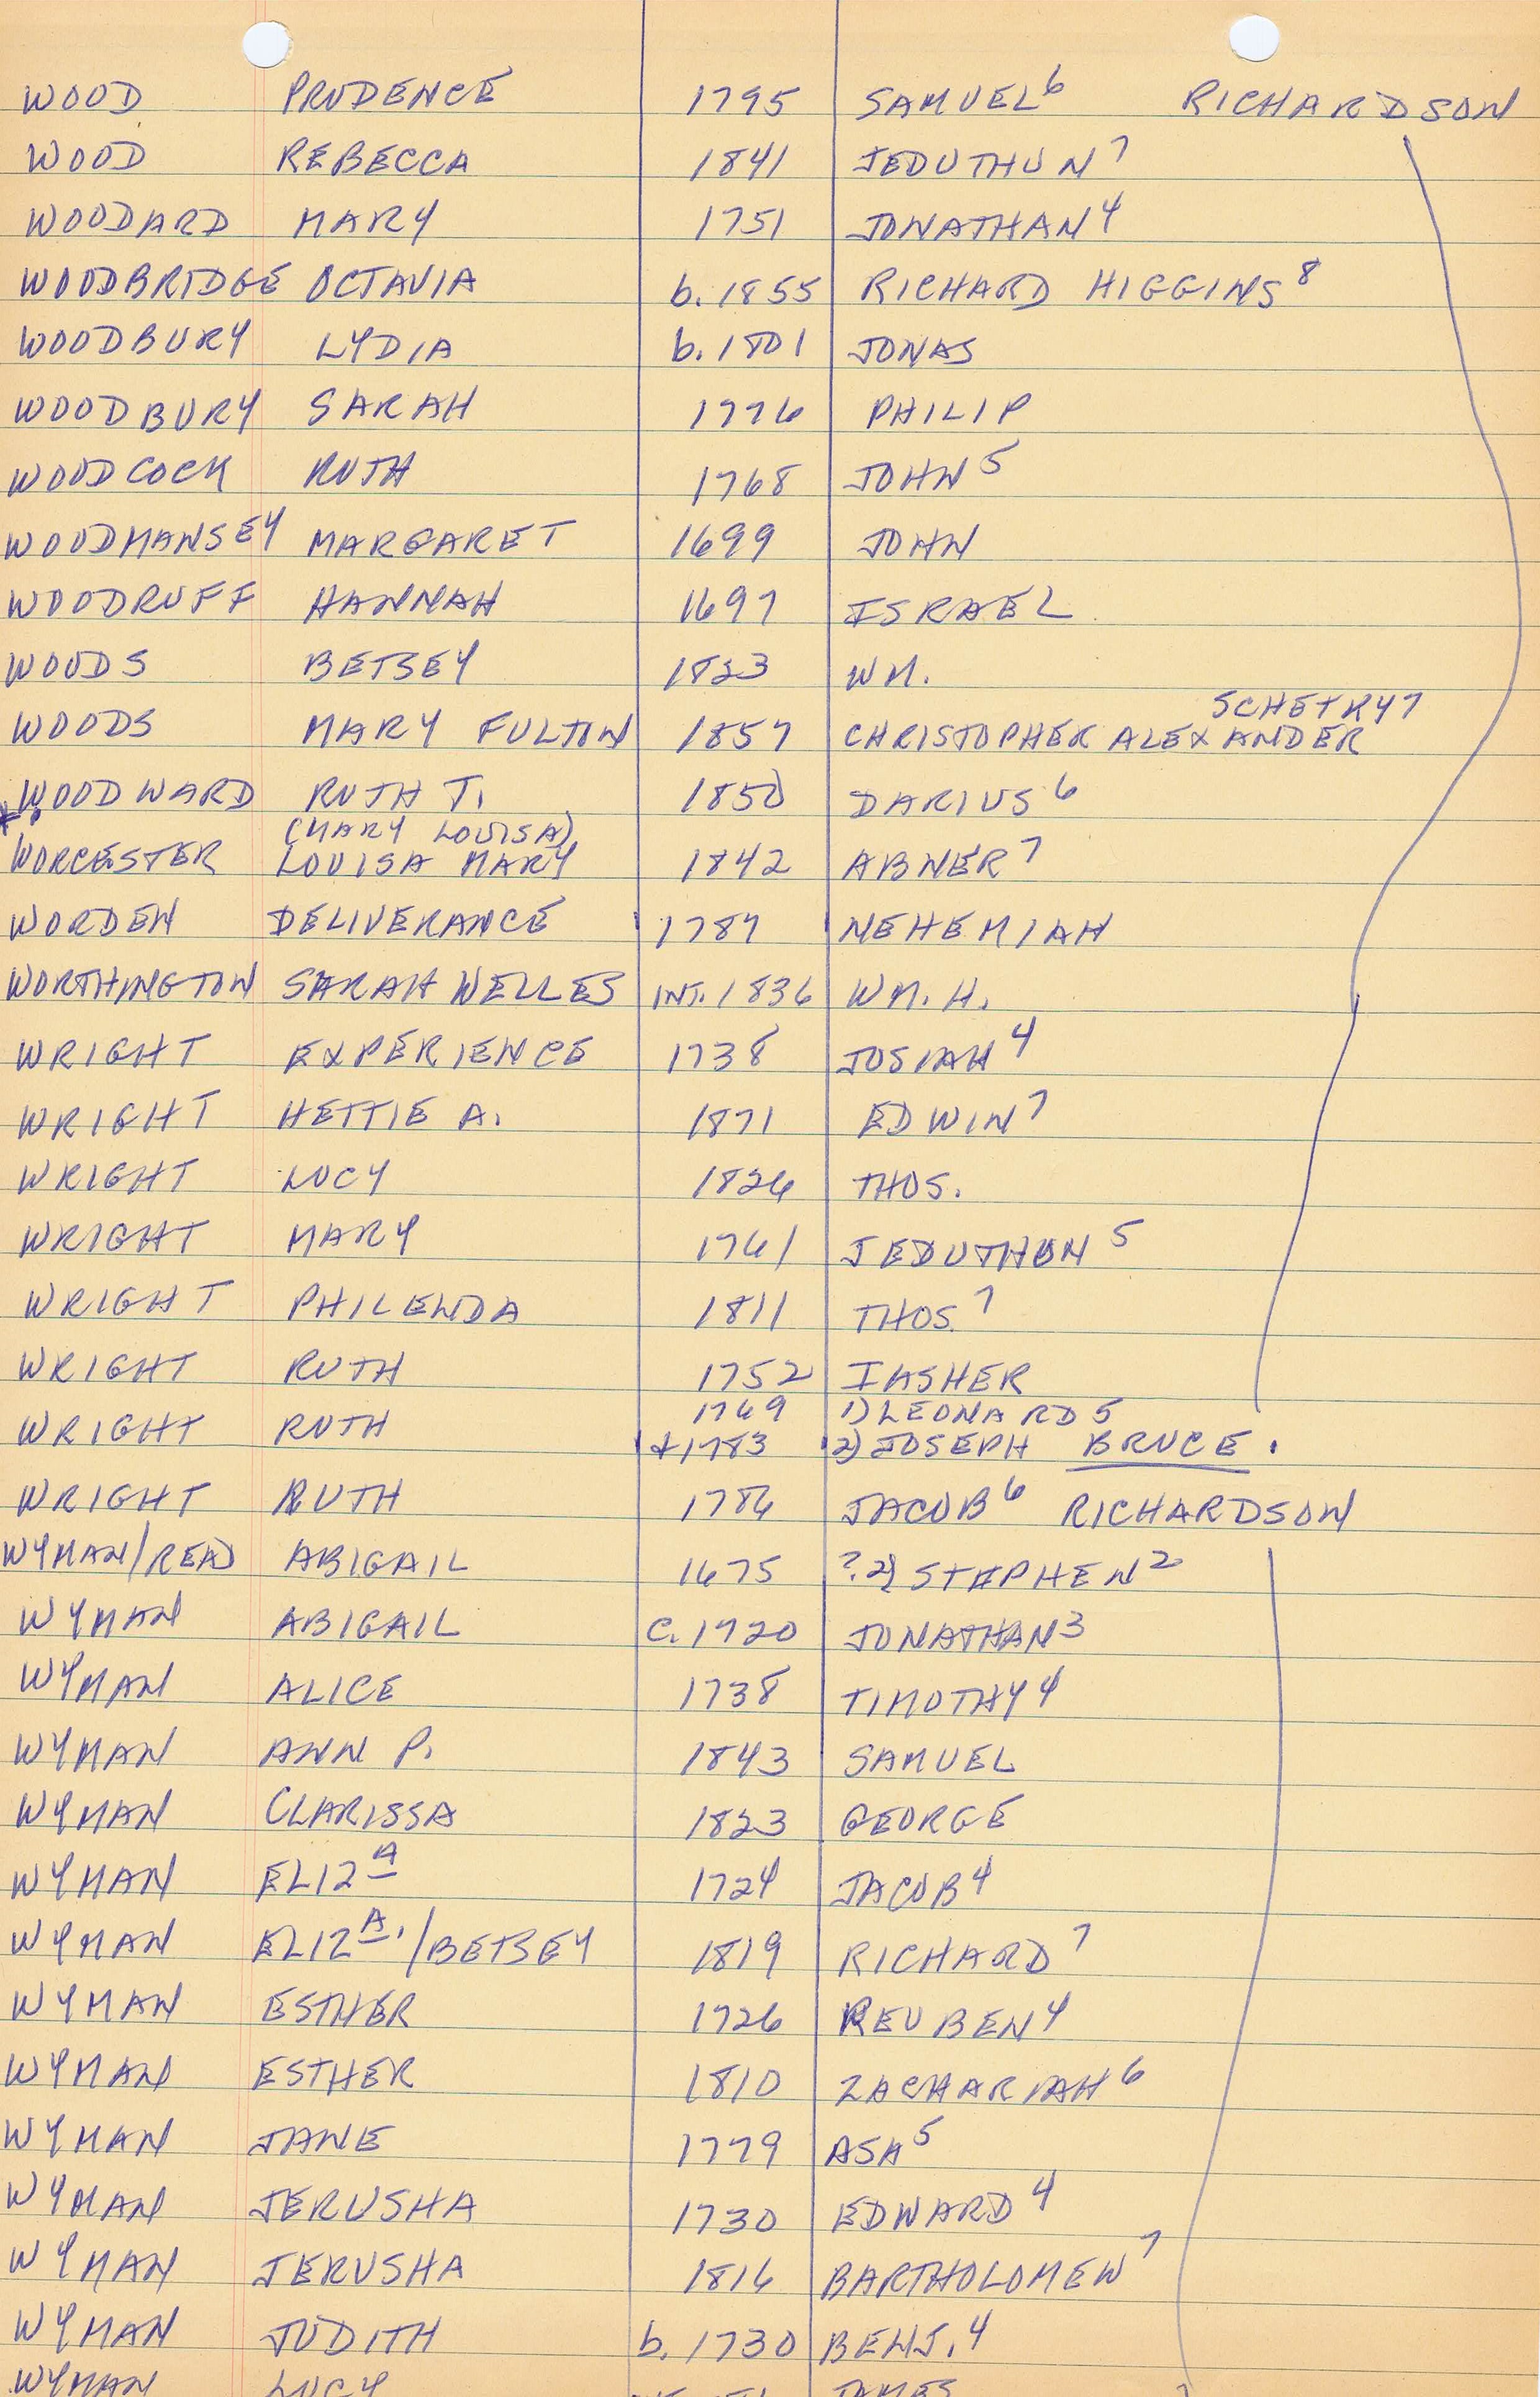 WOOD PRUDENCE 1795 SAMUEL⁶ RICHARDSON
WOOD REBECCA 1841 JEDUTHUN⁷
WOODARD MARY 1751 JONATHAN⁴
WOODBRIDGE OCTAVIA b. 1855 RICHARD HIGGINS⁸
WOODBURY LYDIA b. 1801 JONAS
WOODBURY SARAH 1776 PHILIP
WOODCOCK RUTH 1768 JOHN⁵
WOODMANSEY MARGARET 1699 JOHN
WOODRUFF HANNAH 1697 ISRAEL
WOODS BETSEY 1823 WM.
SCHETKY⁷
WOODS MARY FULTON 1857 CHRISTOPHER ALEXANDER
WOODWARD RUTH T. 1850 DARIUS⁶
(MARY LOUISA)
WORCESTER LOUISA MARY 1842 ABNER⁷
WORDEN DELIVERANCE 1787 NEHEMIAH
WORTHINGTON SARAH WELLES INT. 1836 WM. H.
WRIGHT EXPERIENCE 1738 JOSIAH⁴
WRIGHT HETTIE A. 1871 EDWIN⁷
WRIGHT LUCY 1826 THOS.
WRIGHT MARY 1761 JEDUTHUN⁵
WRIGHT PHILENDA 1811 THOS.⁷
WRIGHT RUTH 1752 IASHER
1769 1) LEONARD⁵
WRIGHT RUTH +1783 2) JOSEPH BRUCE.
WRIGHT RUTH 1786 JACOB⁶ RICHARDSON
WYMAN/READ ABIGAIL 1675 ?2) STEPHEN²
WYMAN ABIGAIL C. 1720 JONATHAN³
WYMAN ALICE 1738 TIMOTHY⁴
WYMAN ANN P. 1843 SAMUEL
WYMAN CLARISSA 1823 GEORGE
WYMAN ELIZᴬ 1724 JACOB⁴
WYMAN ELIZᴬ./BETSEY 1819 RICHARD⁷
WYMAN ESTHER 1726 REUBEN⁴
WYMAN ESTHER 1810 ZACHARIAH⁶
WYMAN JANE 1779 ASA⁵
WYMAN JERUSHA 1730 EDWARD⁴
WYMAN JERUSHA 1816 BARTHOLOMEW⁷
WYMAN JUDITH b. 1730 BENJ.⁴
WYMAN LUCY JAMES